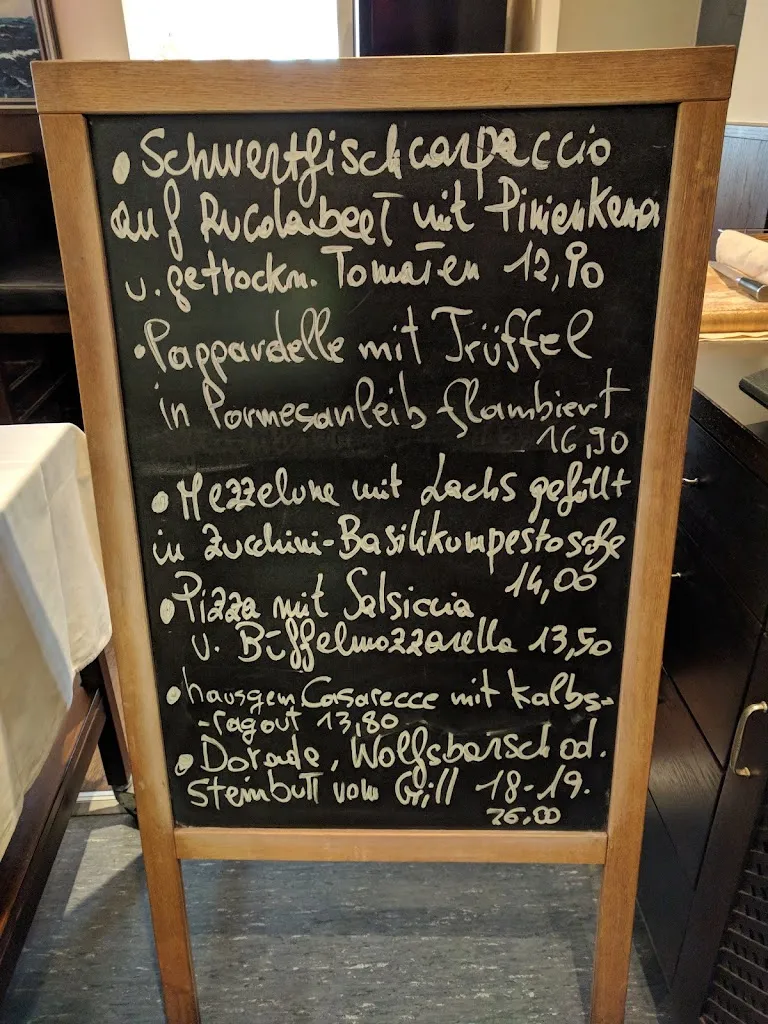 • Schwertfischcarpaccio
auf Rucolabeet mit Pinienkernen
u. getrockn. Tomaten 12,90
• Pappardelle mit Trüffel
in Parmesanleib flambiert
16,90
• Mezzelune mit Lachs gefüllt
in Zucchini-Basilikumpestosoße
14,00
• Pizza mit Salsiccia
u. Büffelmozzarella 13,50
• hausgem. Casarecce mit Kalbs-
-ragout 13,80
• Dorade, Wolfsbarsch od.
Steinbutt vom Grill 18-19.
26,00